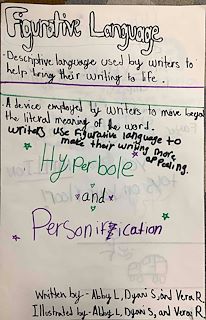 Figurative Language
-Descriptive language used by writers to
help bring their writing to life.
-A device employed by writers to move beyond
the literal meaning of the word.
writers use figurative language to
make their writing more
appealing.
Hyperbole
and
Personification
Written by- Abby L, Dyani S, and Vera R
Illustrated by- Abby L, Dyani S, and Vera R